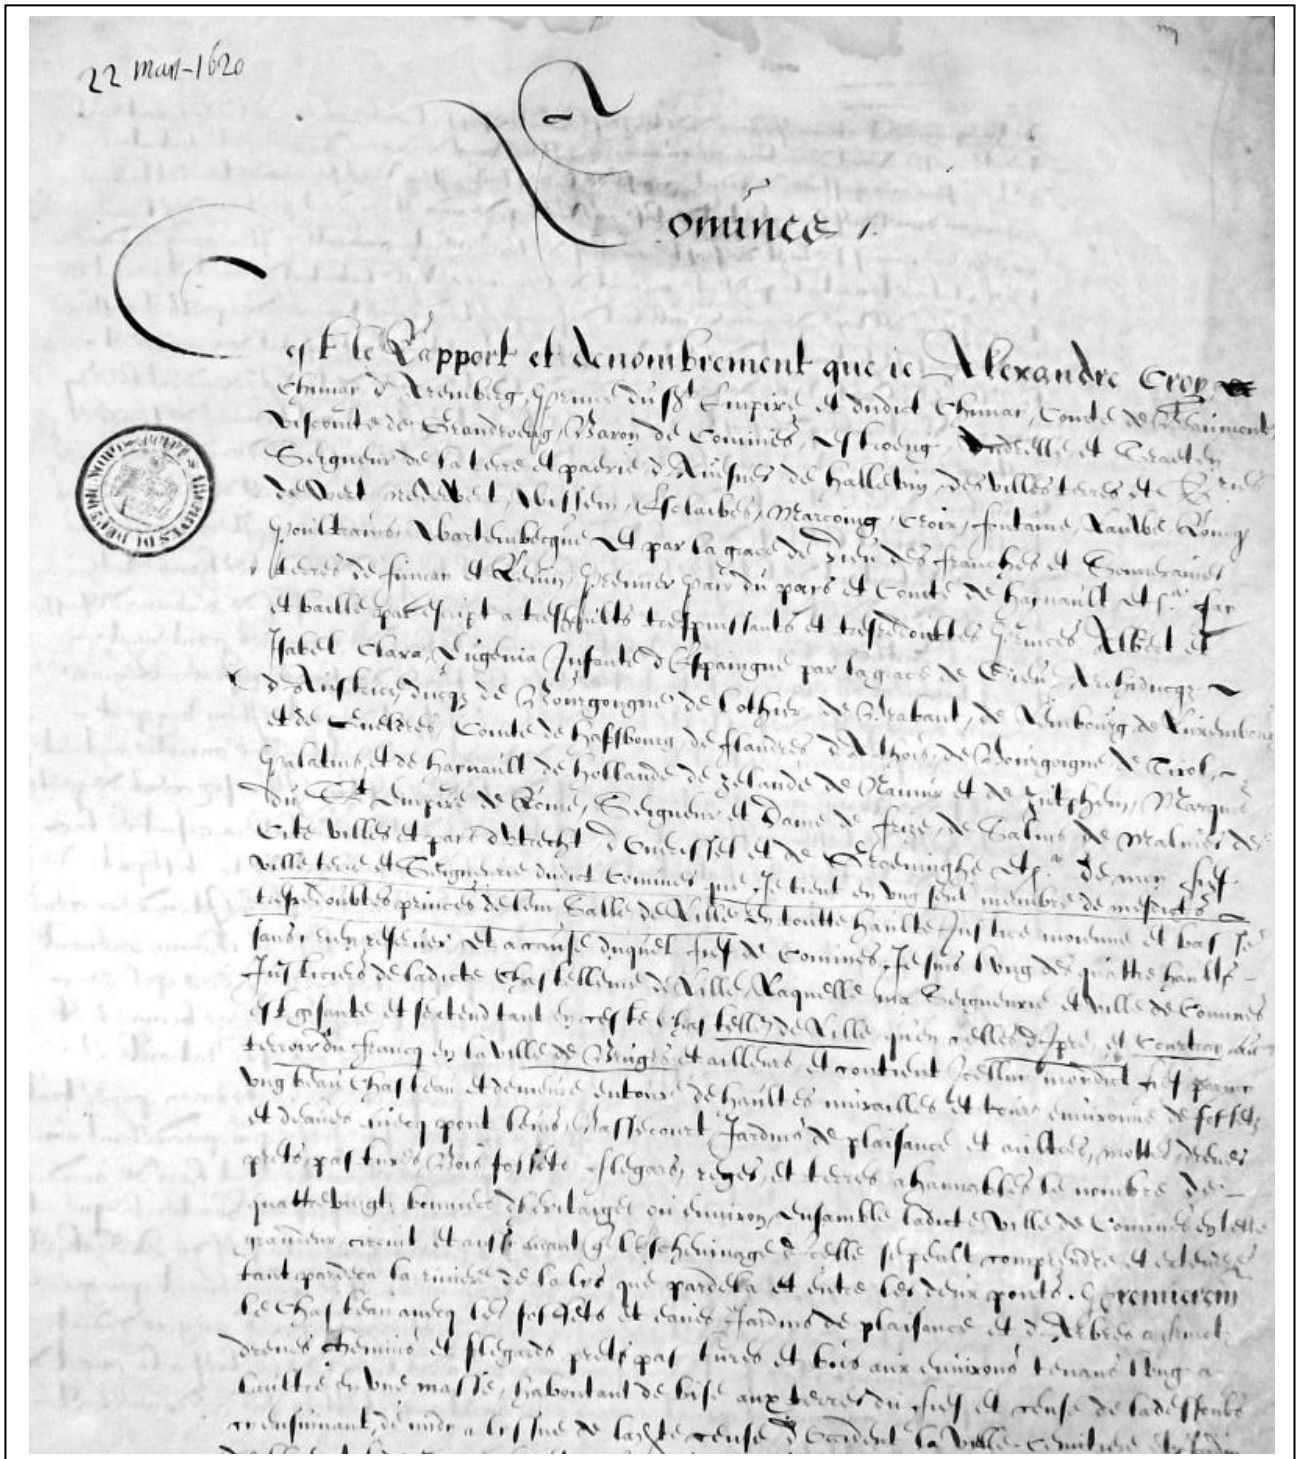 22 mars 1620
Comines
Cest le Rapport et denombrement que ie Alexandre Croy
Chimai d'Aremberg, Prince du St Empire et dudict Chimai, Conte de Beaumont,
Viscomte de Grandroeng, Baron de Comines, Estroeng, et
Seigneur de la terre et pairie d'Avesnes de Halleuin, des villes terres et Sries
de Wert, nederWert, Wissem, Esclaibes, Marcoing, Croix, fontaine,
Wartembecque et par la grace de Dieu des franches et Souueraines
terres de fimain et Reuin, premier pair du pays et Comté de haynault etc. fay
et baille par escript a treshaults trespuissants et tresredoubtes Princes Albert et
Isabel Clara Eugenia Infante d'Espaingne par la grace de Dieu Archiducqz
d'Austrice, ducqz de Bourgongne de Lothier, de Brabant, de Lembourg, de Luxembourg
et de Gueldres, Comte de Hafsbourg, de flandres d'Arthois, de Bourgoigne, de Tirol,
Palatins, et de haynault de hollande de zelande de Namur et de zutphen, Marquis
du St Empire de Rome, Seigneur et Dame de frize, de Salins de Malines des
Cité villes et pays d'Utrecht d'Ouerissel et de Groeninghe etc. de mon fief
ville terre et Seigneurie dudict Comines que Je tient en ung seul membre de mesdicts
tresredoubtes princes de leur Salle de Lille en toutte haulte Justice moienne et basse
sans rien reseruer, et a cause duquel fief de Comines, Je suis l'ung des quattre haults
Justiciers de ladicte Chastellenie de Lille, Laquelle ma Seigneurie et ville de Comines
est gisante et sextend tant en ceste Chastellenie de Lille, qu'en celles d'Ipre, et Courtray
terroir du francq en la ville de Bruges et ailleurs et contient Icelluy mondict fief
ung beau Chasteau et demeure entouré de haultes murailles et tours enuironné de fossez
et d'eaues auecq pont leuis, bassecourt, Jardins de plaisance et aultres, mottes, dreues
prets, pastures, bois fossets, flegars, et terres ahannables le nombre de
quattrevingts bonniers d'heritaiges ou enuiron, ensamble ladicte ville de Comines en telle
grandeur circuit et auant que l'escheuinage d'icelle se peult comprendre et extendre
tant pardeca la riuiere de la Lys que pardela et entre les deux ponts. Premierement
le Chasteau auecq les fossets et eaues, Jardins de plaisance et d'Arbres
dreues chemins et flegards prets pastures et bois aux enuirons tenans l'ung a
laultre en une masse, haboutant de bise aux terres du fief et cense de